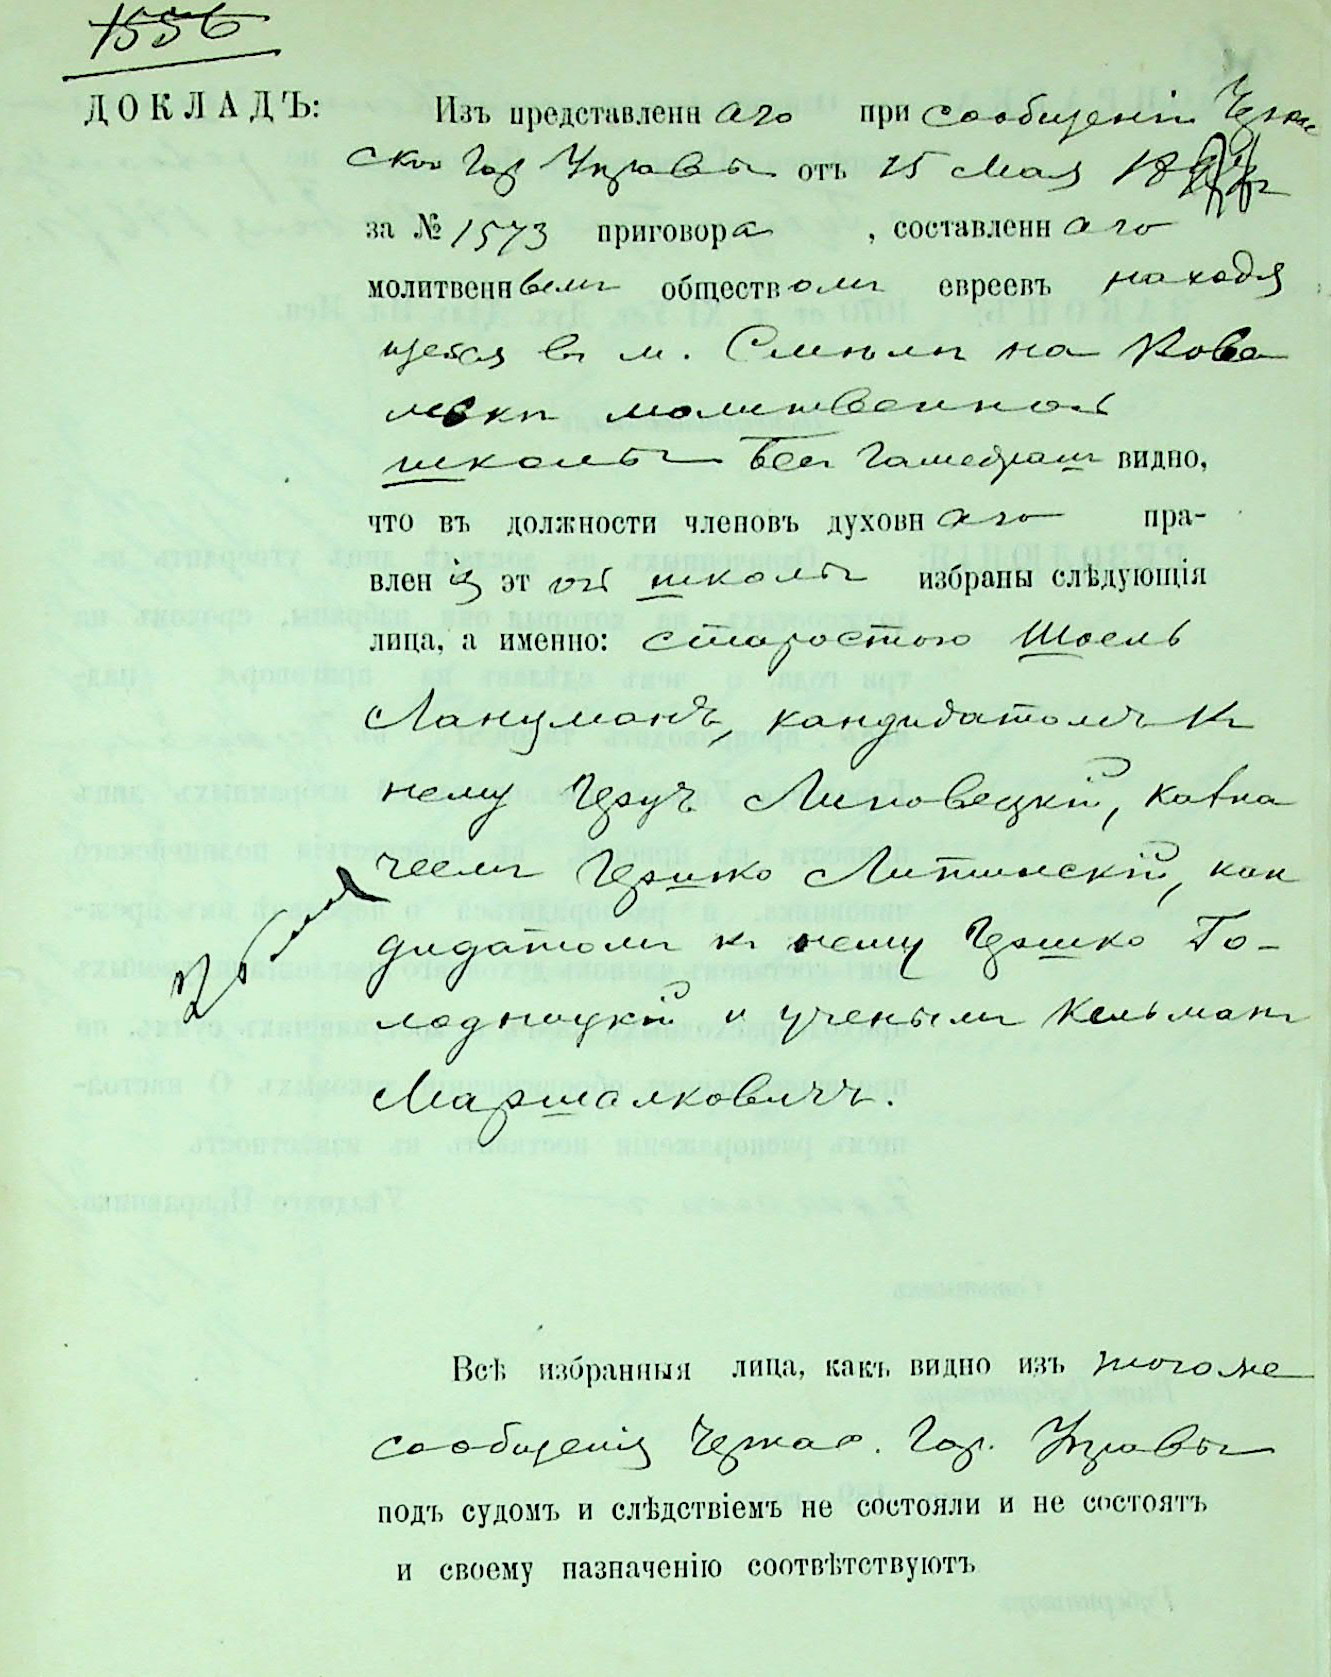 1556
ДОКЛАДЪ: Изъ представленнаго при сообщеніи Черкас
ской Гор Управы отъ 15 Мая
за № 1573 приговора, составленнаго
молитвеннымъ обществомъ евреевъ находя
щейся въ м. Смѣлѣ на Кова
левкѣ молитвенной
школы Бесъ Гамедрашъ видно,
что въ должности членовъ духовнаго пра-
вленія этой школы избраны слѣдующія
лица, а именно: старостою Шоель
Ланцманъ, кандидатомъ къ
нему Герцъ Липовецкій, казна
чеемъ Гершко Литинскій, кан
дидатомъ къ нему Гершко Го-
лодницкій и ученымъ Кельманъ
Маршалковичъ.
Всѣ избранныя лица, какъ видно изъ того же
сообщенія Черкас. Гор. Управы
подъ судомъ и слѣдствіемъ не состояли и не состоятъ
и своему назначенію соотвѣтствуютъ